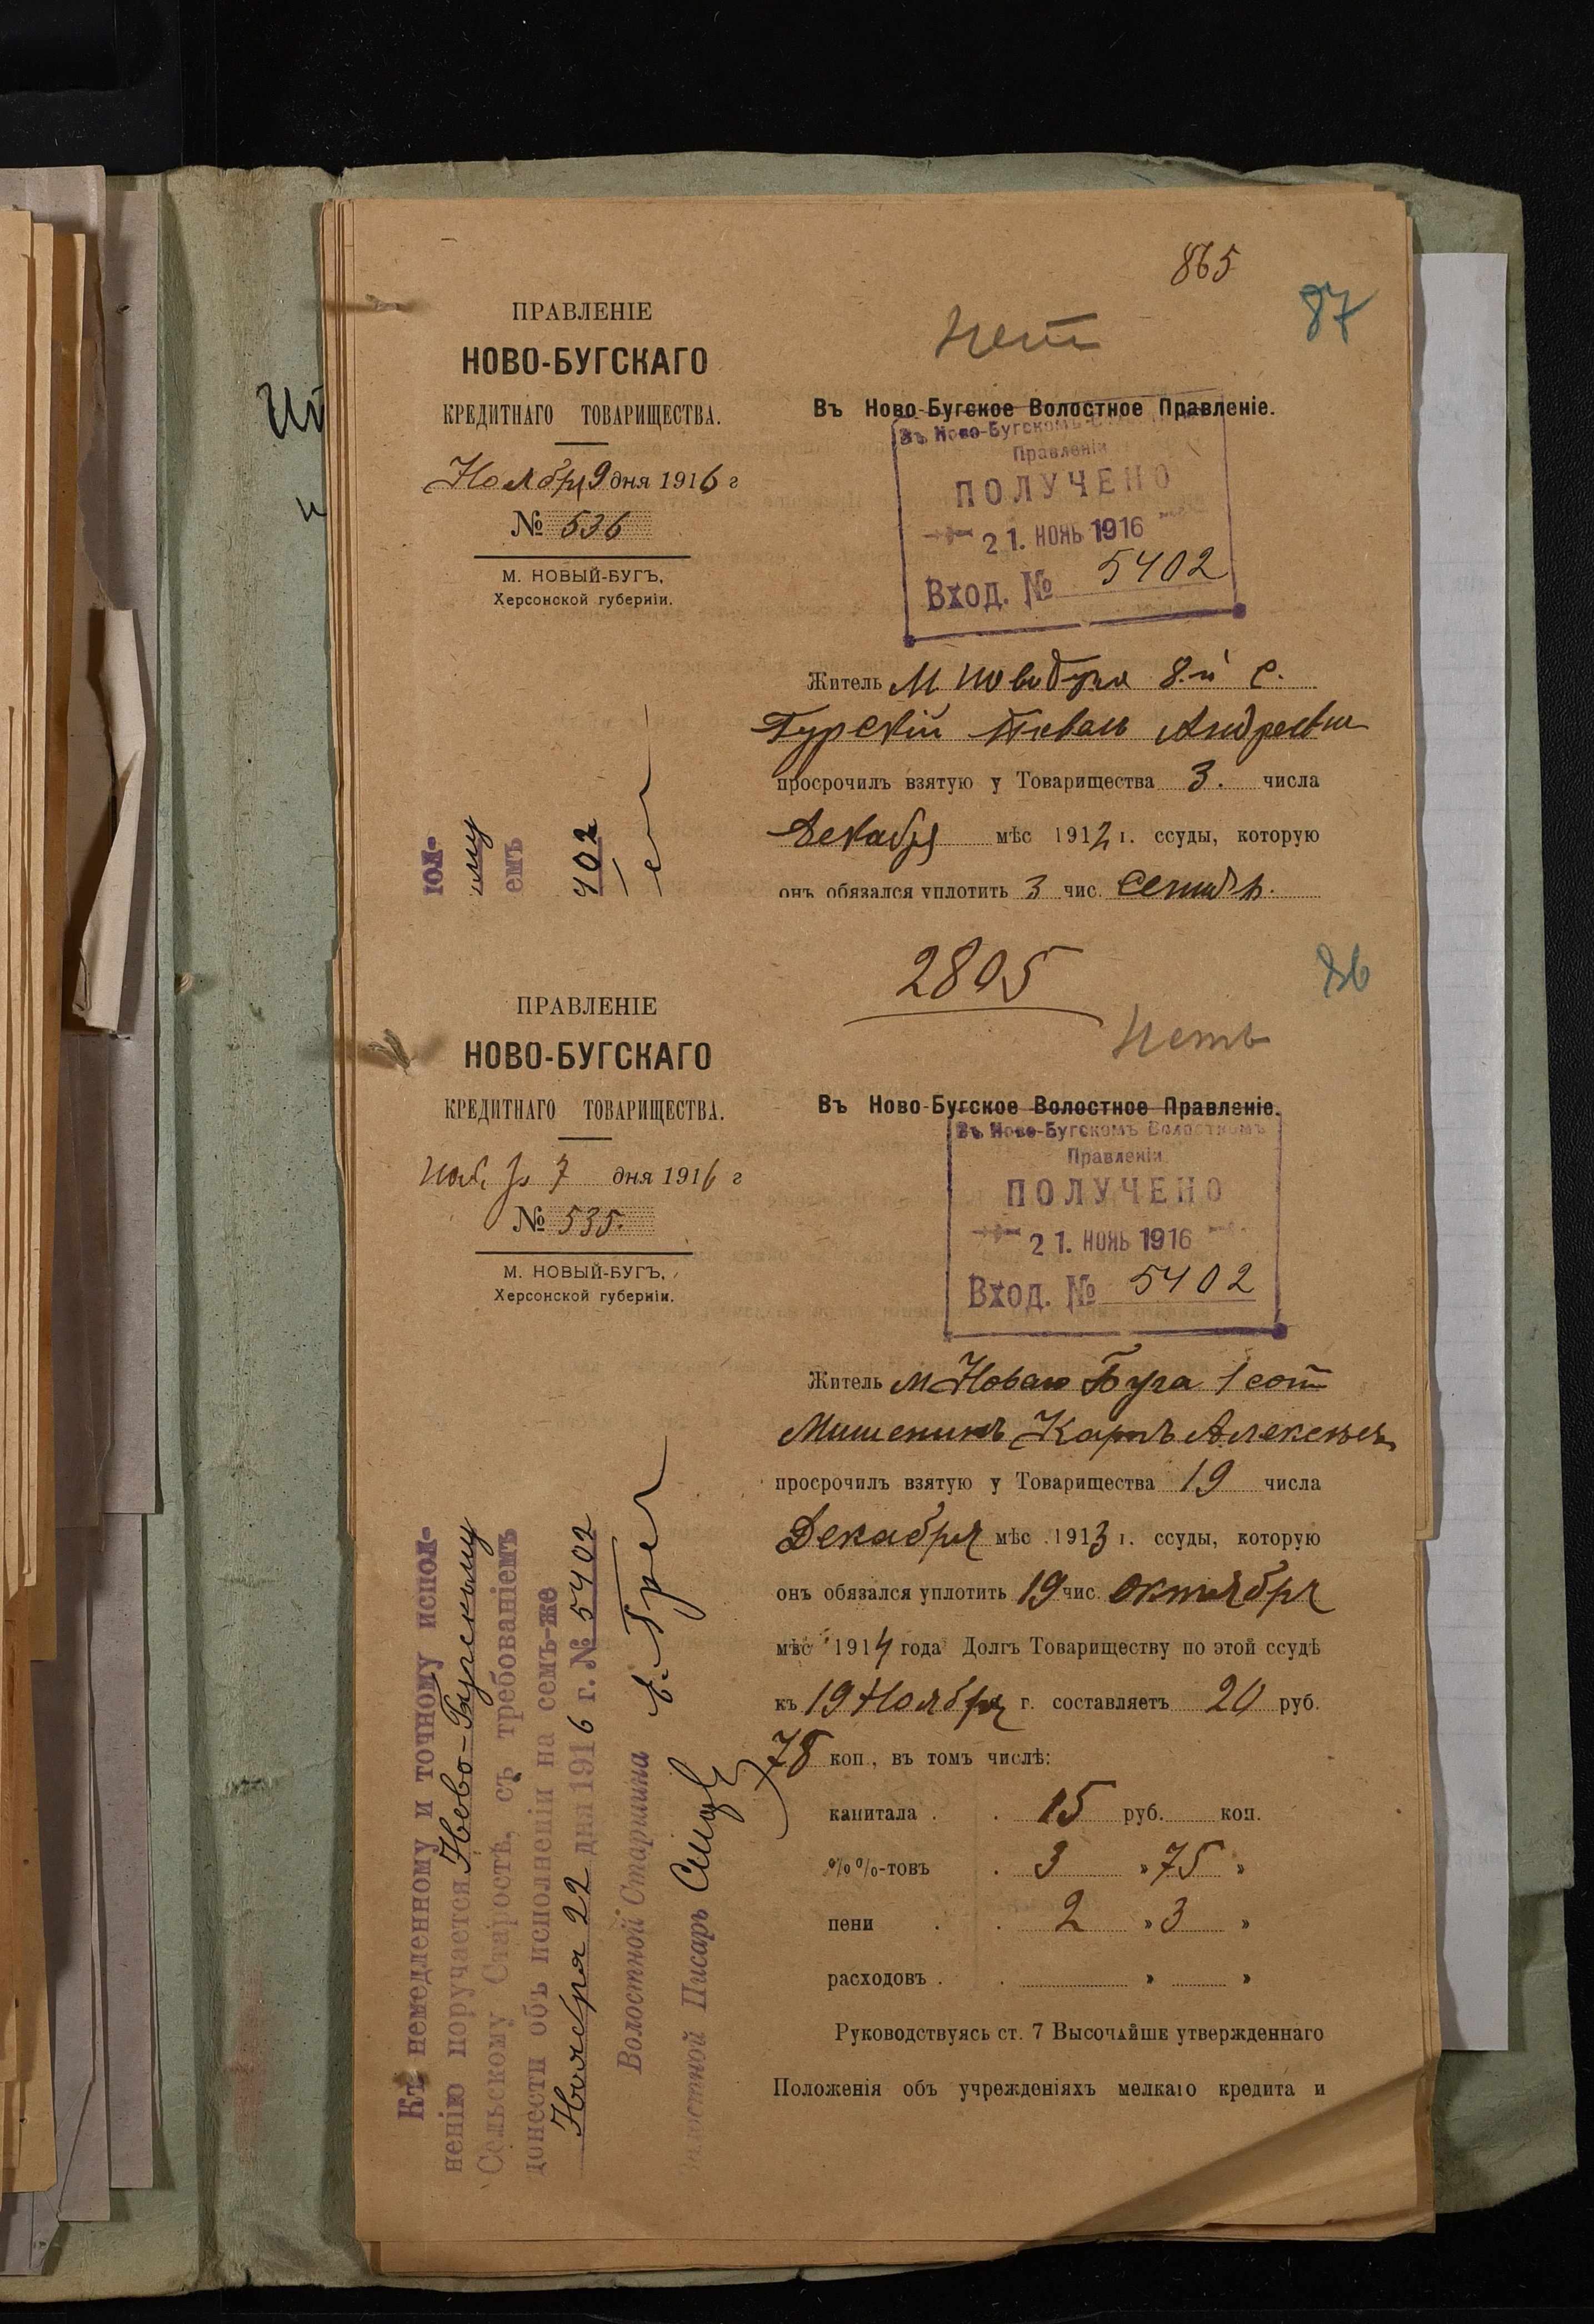 865
87
Нет
ПРАВЛЕНІЕ
НОВО-БУГСКАГО
КРЕДИТНАГО ТОВАРИЩЕСТВА.
Ноября 9 дня 1916 г
№ 536
М. НОВЫЙ-БУГЪ,
Херсонской губерніи.
Въ Ново-Бугское Волостное Правленіе.
Въ Ново-Бугскомъ
Правленіи
ПОЛУЧЕНО
21. НОЯЬ 1916
Вход. № 5402
Житель М. Новобуга 8-й с.
Гурскій Андреевъ
просрочилъ взятую у Товарищества 3. числа
Декабря мѣс 1912 г. ссуды, которую
онъ обязался уплотить 3 чис. Сентяб.
пол-
ому
емъ
402
2805
86
Нетъ
ПРАВЛЕНІЕ
НОВО-БУГСКАГО
КРЕДИТНАГО ТОВАРИЩЕСТВА.
Нояб. 7 дня 1916 г
№ 535.
М. НОВЫЙ-БУГЪ,
Херсонской губерніи.
Въ Ново-Бугское Волостное Правленіе.
Въ Ново-Бугскомъ Волостномъ
Правленіи
ПОЛУЧЕНО
21. НОЯЬ 1916
Вход. № 5402
Житель М Новаго Буга 1 сот
Мишенинъ Карпъ Алексѣев
просрочилъ взятую у Товарищества 19 числа
Декабря мѣс 1913 г. ссуды, которую
онъ обязался уплотить 19 чис. Октября
мѣс 1914 года Долгъ Товариществу по этой ссудѣ
къ 19 Ноября г. составляетъ 20 руб.
78 коп., въ томъ числѣ:
капитала . . 15 руб. коп.
%%-товъ . 3 » 75 »
пени . . 2 » 3 »
расходовъ . . » »
Руководствуясь ст. 7 Высочайше утвержденнаго
Положенія объ учрежденіяхъ мелкаго кредита и
Къ немедленному и точному испол-
ненію поручается Ново-Бугскому
Сельскому Старостѣ, съ требованіемъ
донести объ исполненіи на семъ-же
Ноября 22 дня 1916 г. № 5402
Волостной Старшина
Волостной Писарь